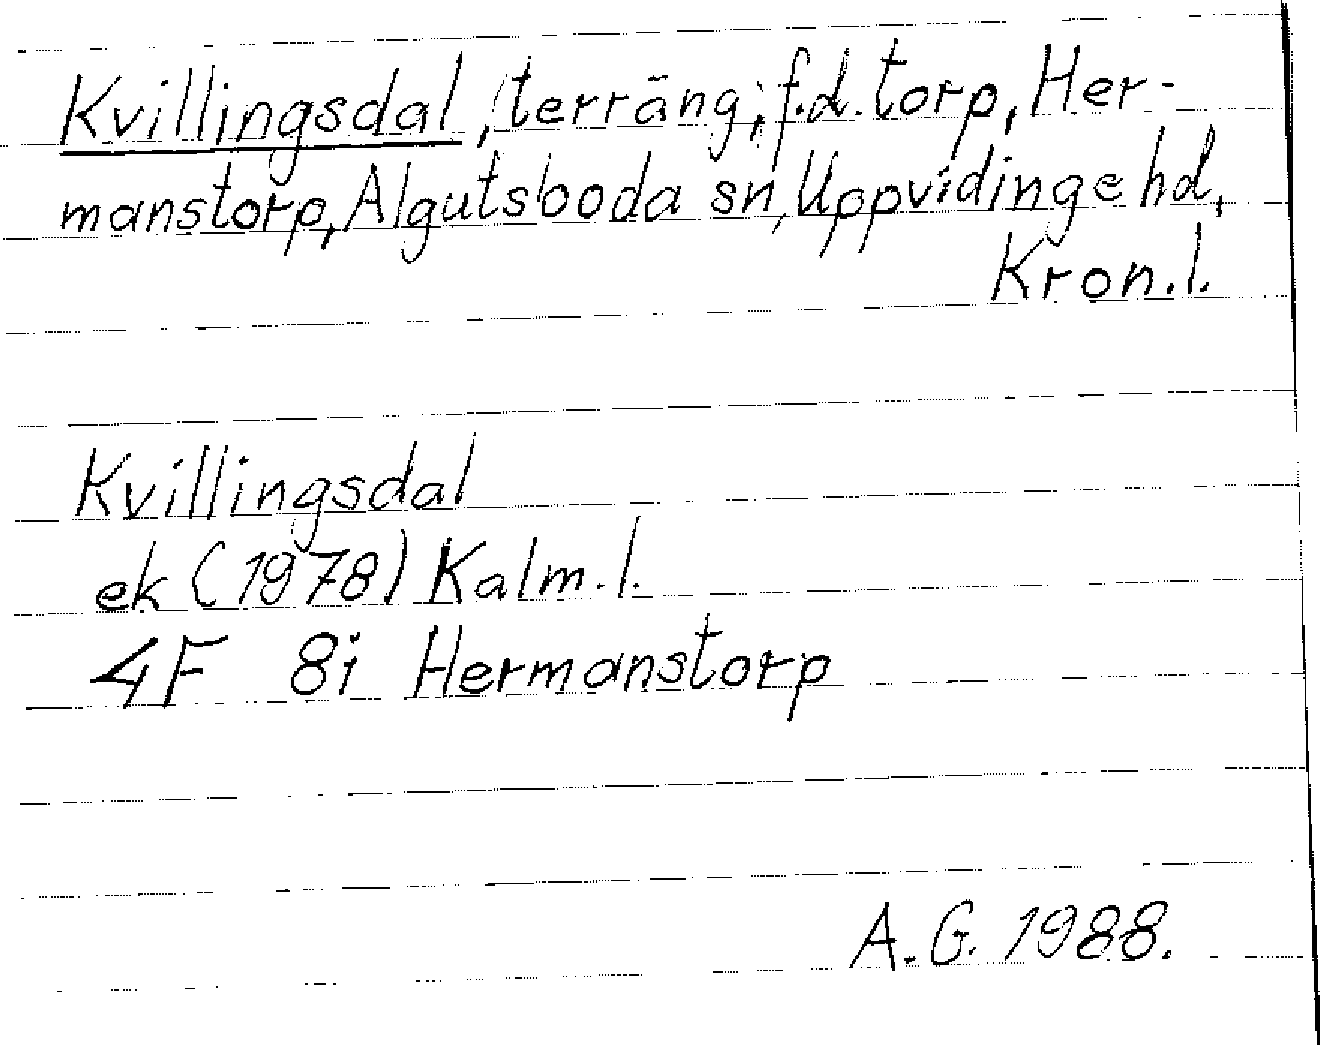 Kvillingsdal, terräng; f.d. torp, Her-
manstorp, Algutsboda sn, Uppvidinge hd,
Kron.l.
Kvillingsdal
ek (1978) Kalm.l.
4F 8i Hermanstorp
A.G. 1988.